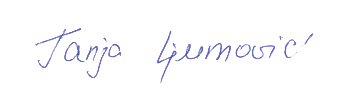 Tanja Ljumović